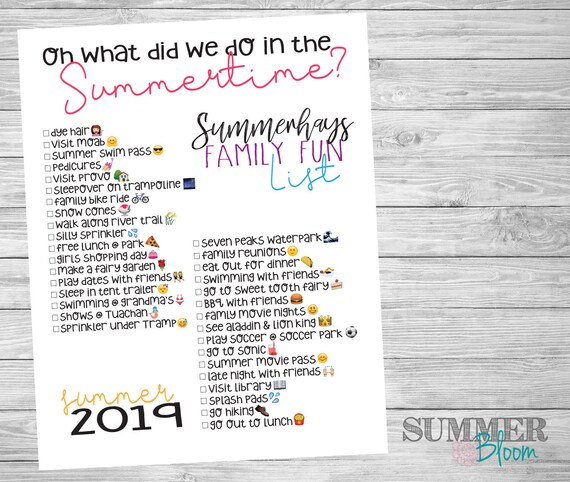 Oh what did we do in the
Summertime?
Summerhays
FAMILY FUN
List
dye hair
visit Moab
summer swim pass
pedicures
visit Provo
sleepover on trampoline
family bike ride
snow cones
walk along river trail
silly sprinkler
free lunch @ park
girls shopping day
make a fairy garden
play dates with friends
sleep in tent trailer
swimming @ grandma's
shows @ Tuachan
sprinkler under tramp
seven peaks waterpark
family reunions
eat out for dinner
swimming with friends
go to sweet tooth fairy
BBQ with friends
famly movie nights
see aladdin & lion king
play soccer @ soccer park
go to sonic
summer movie pass
late night with friends
visit library
splash pads
go hiking
go out to lunch
summer
2019
SUMMER
Bloom